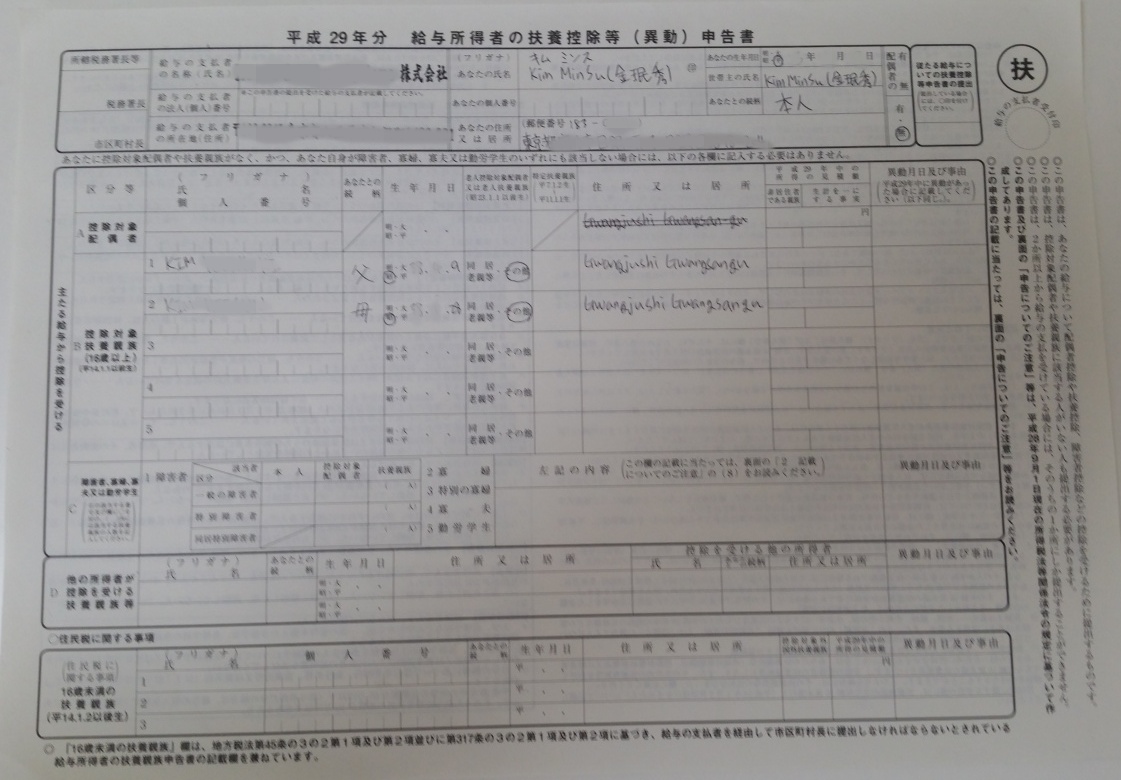 平成 29 年分 給与所得者の扶養控除等（異動）申告書
所轄税務署長等
税務署長
市区町村長
給与の支払者の名称（氏名）
株式会社
給与の支払者の法人（個人）番号
給与の支払者の所在地（住所）
（フリガナ） キム ミンス
あなたの氏名 Kim MinSu (金珉秀)
あなたの個人番号
あなたの住所又は居所
（郵便番号 183 -
東京都
あなたの生年月日 年 月 日
世帯主の氏名 Kim MinSu (金珉秀)
あなたとの続柄 本人
配偶者の有無
有・無
従たる給与についての扶養控除等申告書の提出
扶
給与の支払者受付印
あなたに控除対象配偶者や扶養親族がなく、かつ、あなた自身が障害者、寡婦、寡夫又は勤労学生のいずれにも該当しない場合には、以下の各欄に記入する必要はありません。
区分等
（フリガナ）
氏 名
個人番号
あなたとの続柄
生年月日
住所又は居所
平成29年中の所得の見積額
非居住者である親族
生計を一にする事実
異動月日及び事由
平成29年中に異動があった場合に記載してください（以下同じ。）。
主たる給与から控除を受ける
A 控除対象配偶者
明・大
昭・平
円
Gwangjushi Gwangsan-gu
B 控除対象扶養親族（16歳以上）（平14.1.1以前生）
1 KIM 父 同居老親等 その他 Gwangjushi Gwangsangu
2 母 同居老親等 その他 Gwangjushi Gwangsangu
3 明・大 昭・平 同居老親等・その他
4 明・大 昭・平 同居老親等・その他
5 明・大 昭・平 同居老親等・その他
C 障害者、寡婦、寡夫又は勤労学生
1 障害者
区分 該当者 本人 控除対象配偶者 扶養親族
一般の障害者 （ 人）
特別障害者 （ 人）
同居特別障害者 （ 人）
2 寡婦
3 特別の寡婦
4 寡夫
5 勤労学生
左記の内容 （この欄の記載に当たっては、裏面の「2 記載についてのご注意」の（8）をお読みください。）
異動月日及び事由
D 他の所得者が控除を受ける扶養親族等
（フリガナ）
氏 名
あなたとの続柄
生年月日
住所又は居所
控除を受ける他の所得者
氏 名
住所又は居所
異動月日及び事由
明・大
昭・平
明・大
昭・平
○住民税に関する事項
（住民税に関する事項）
16歳未満の扶養親族（平14.1.2以後生）
（フリガナ）
氏 名
個人番号
あなたとの続柄
生年月日
住所又は居所
控除対象外国外扶養親族
平成29年中の所得の見積額
異動月日及び事由
1 平 円
2 平
3 平
○ 「16歳未満の扶養親族」欄は、地方税法第45条の3の2第1項及び第2項並びに第317条の3の2第1項及び第2項に基づき、給与の支払者を経由して市区町村長に提出しなければならないとされている
給与所得者の扶養親族申告書の記載欄を兼ねています。
○この申告書は、あなたの給与について配偶者控除や扶養控除、障害者控除などの控除を受けるために提出するものです。
○この申告書は、控除対象配偶者や扶養親族に該当する人がいない人も提出する必要があります。
○この申告書は、2か所以上から給与の支払を受けている場合には、そのうちの1か所にしか提出することができません。
○この申告書及び裏面の「申告についてのご注意」等は、平成28年9月1日現在の所得税法等関係法令の規定に基づいて作成してあります。
○この申告書の記載に当たっては、裏面の「申告についてのご注意」等をお読みください。